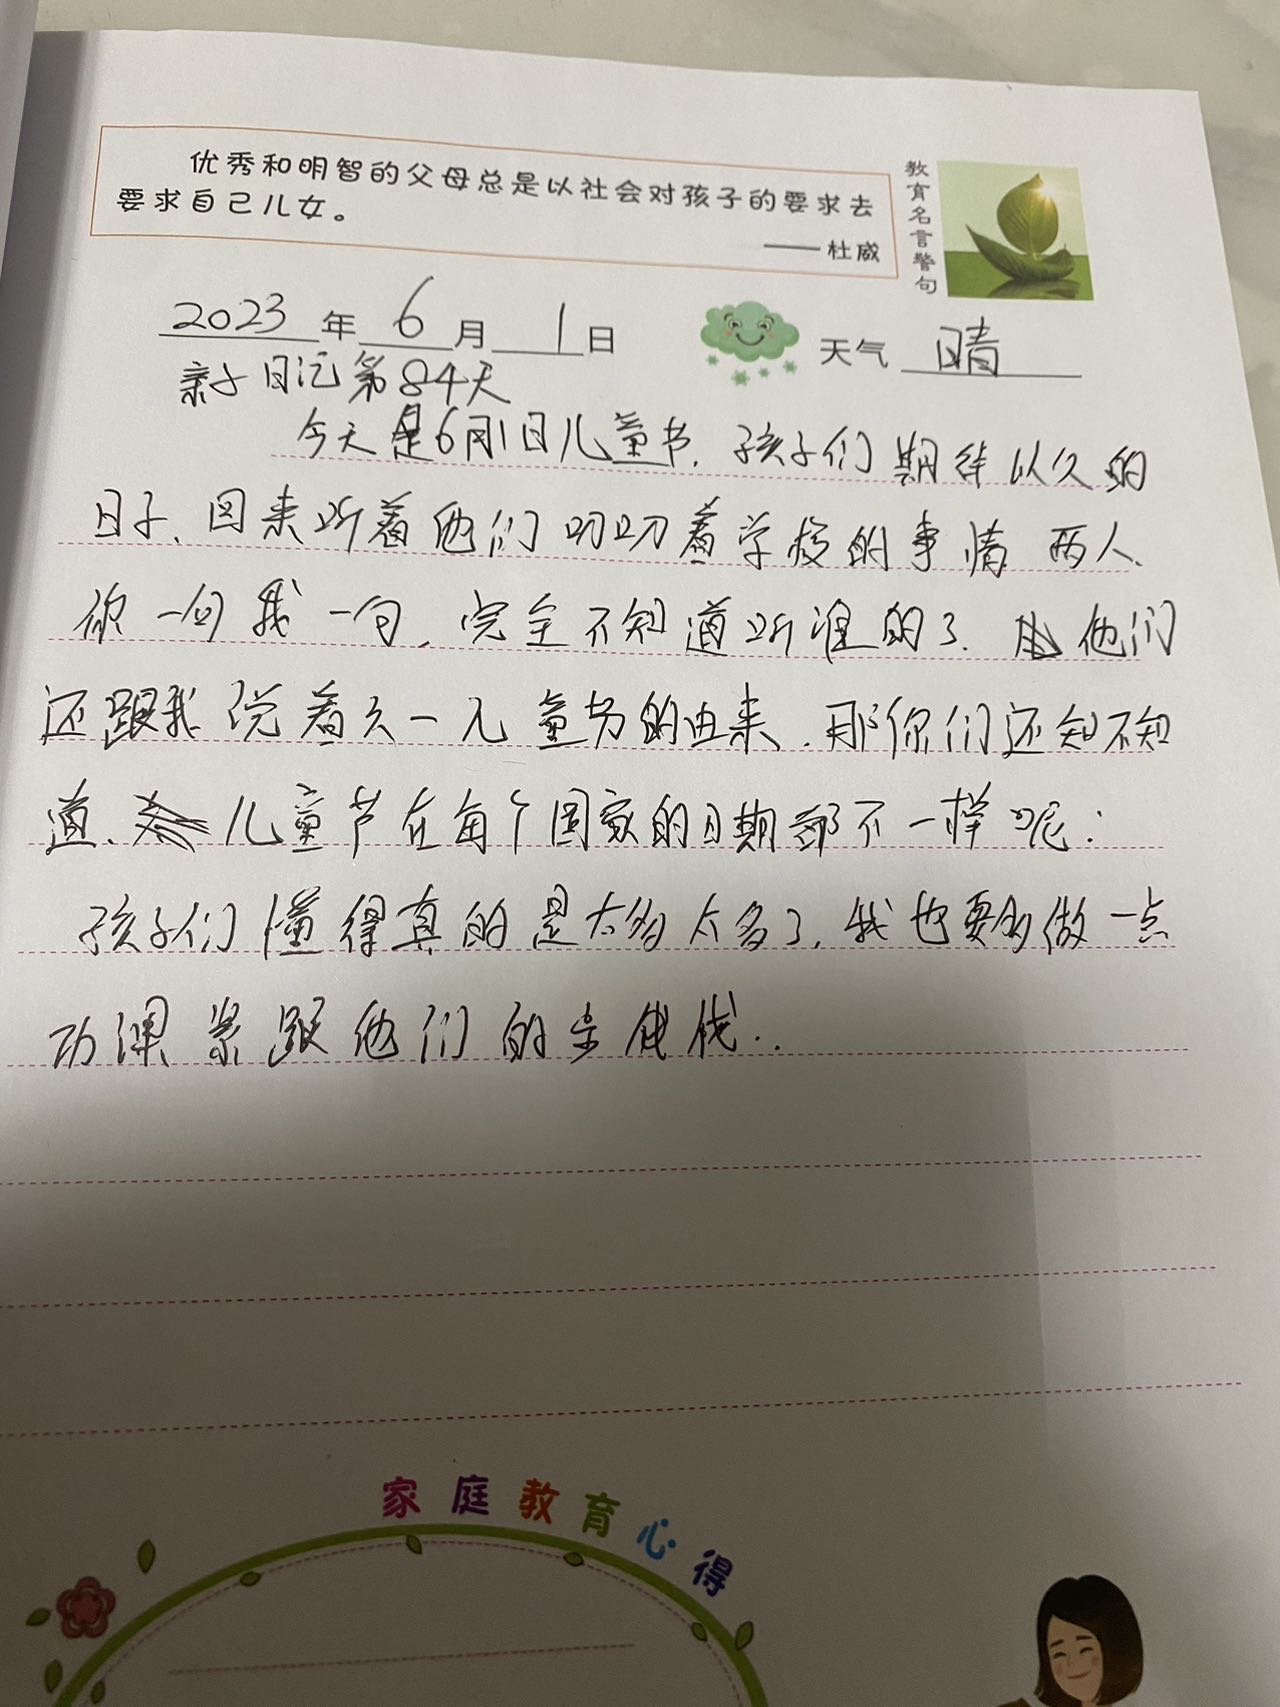 优秀和明智的父母总是以社会对孩子的要求去
要求自己儿女。
——杜威
教育名言警句
2023年6月1日
天气 晴
亲子日记第84天
今天是6月1日儿童节,孩子们期待以久的
日子、回来听着他们叨叨着学校的事情 两人、
你一句我一句,完全不知道听谁的了、他们
还跟我说着六一儿童节的由来、那你们还知不知
道、儿童节在每个国家的日期都不一样呢:
孩子们懂得真的是太多太多了,我也要多做一点
功课 紧跟他们的步伐..
家庭教育心得